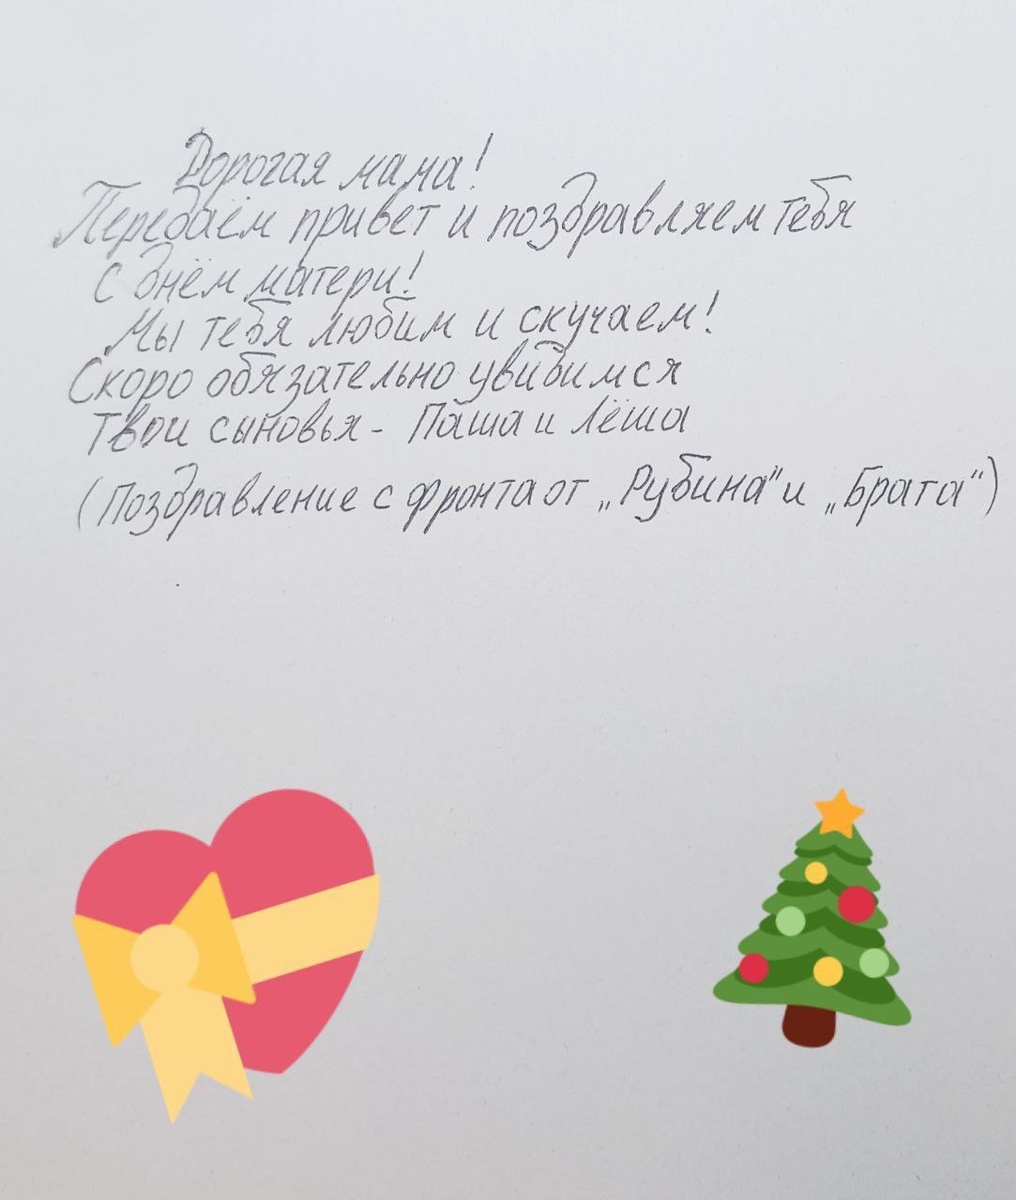 Дорогая мама!
Передаём привет и поздравляем тебя
с днём матери!
Мы тебя любим и скучаем!
Скоро обязательно увидимся
Твои сыновья - Паша и Лёша
(Поздравление с фронта от „Рубина" и „Брата")